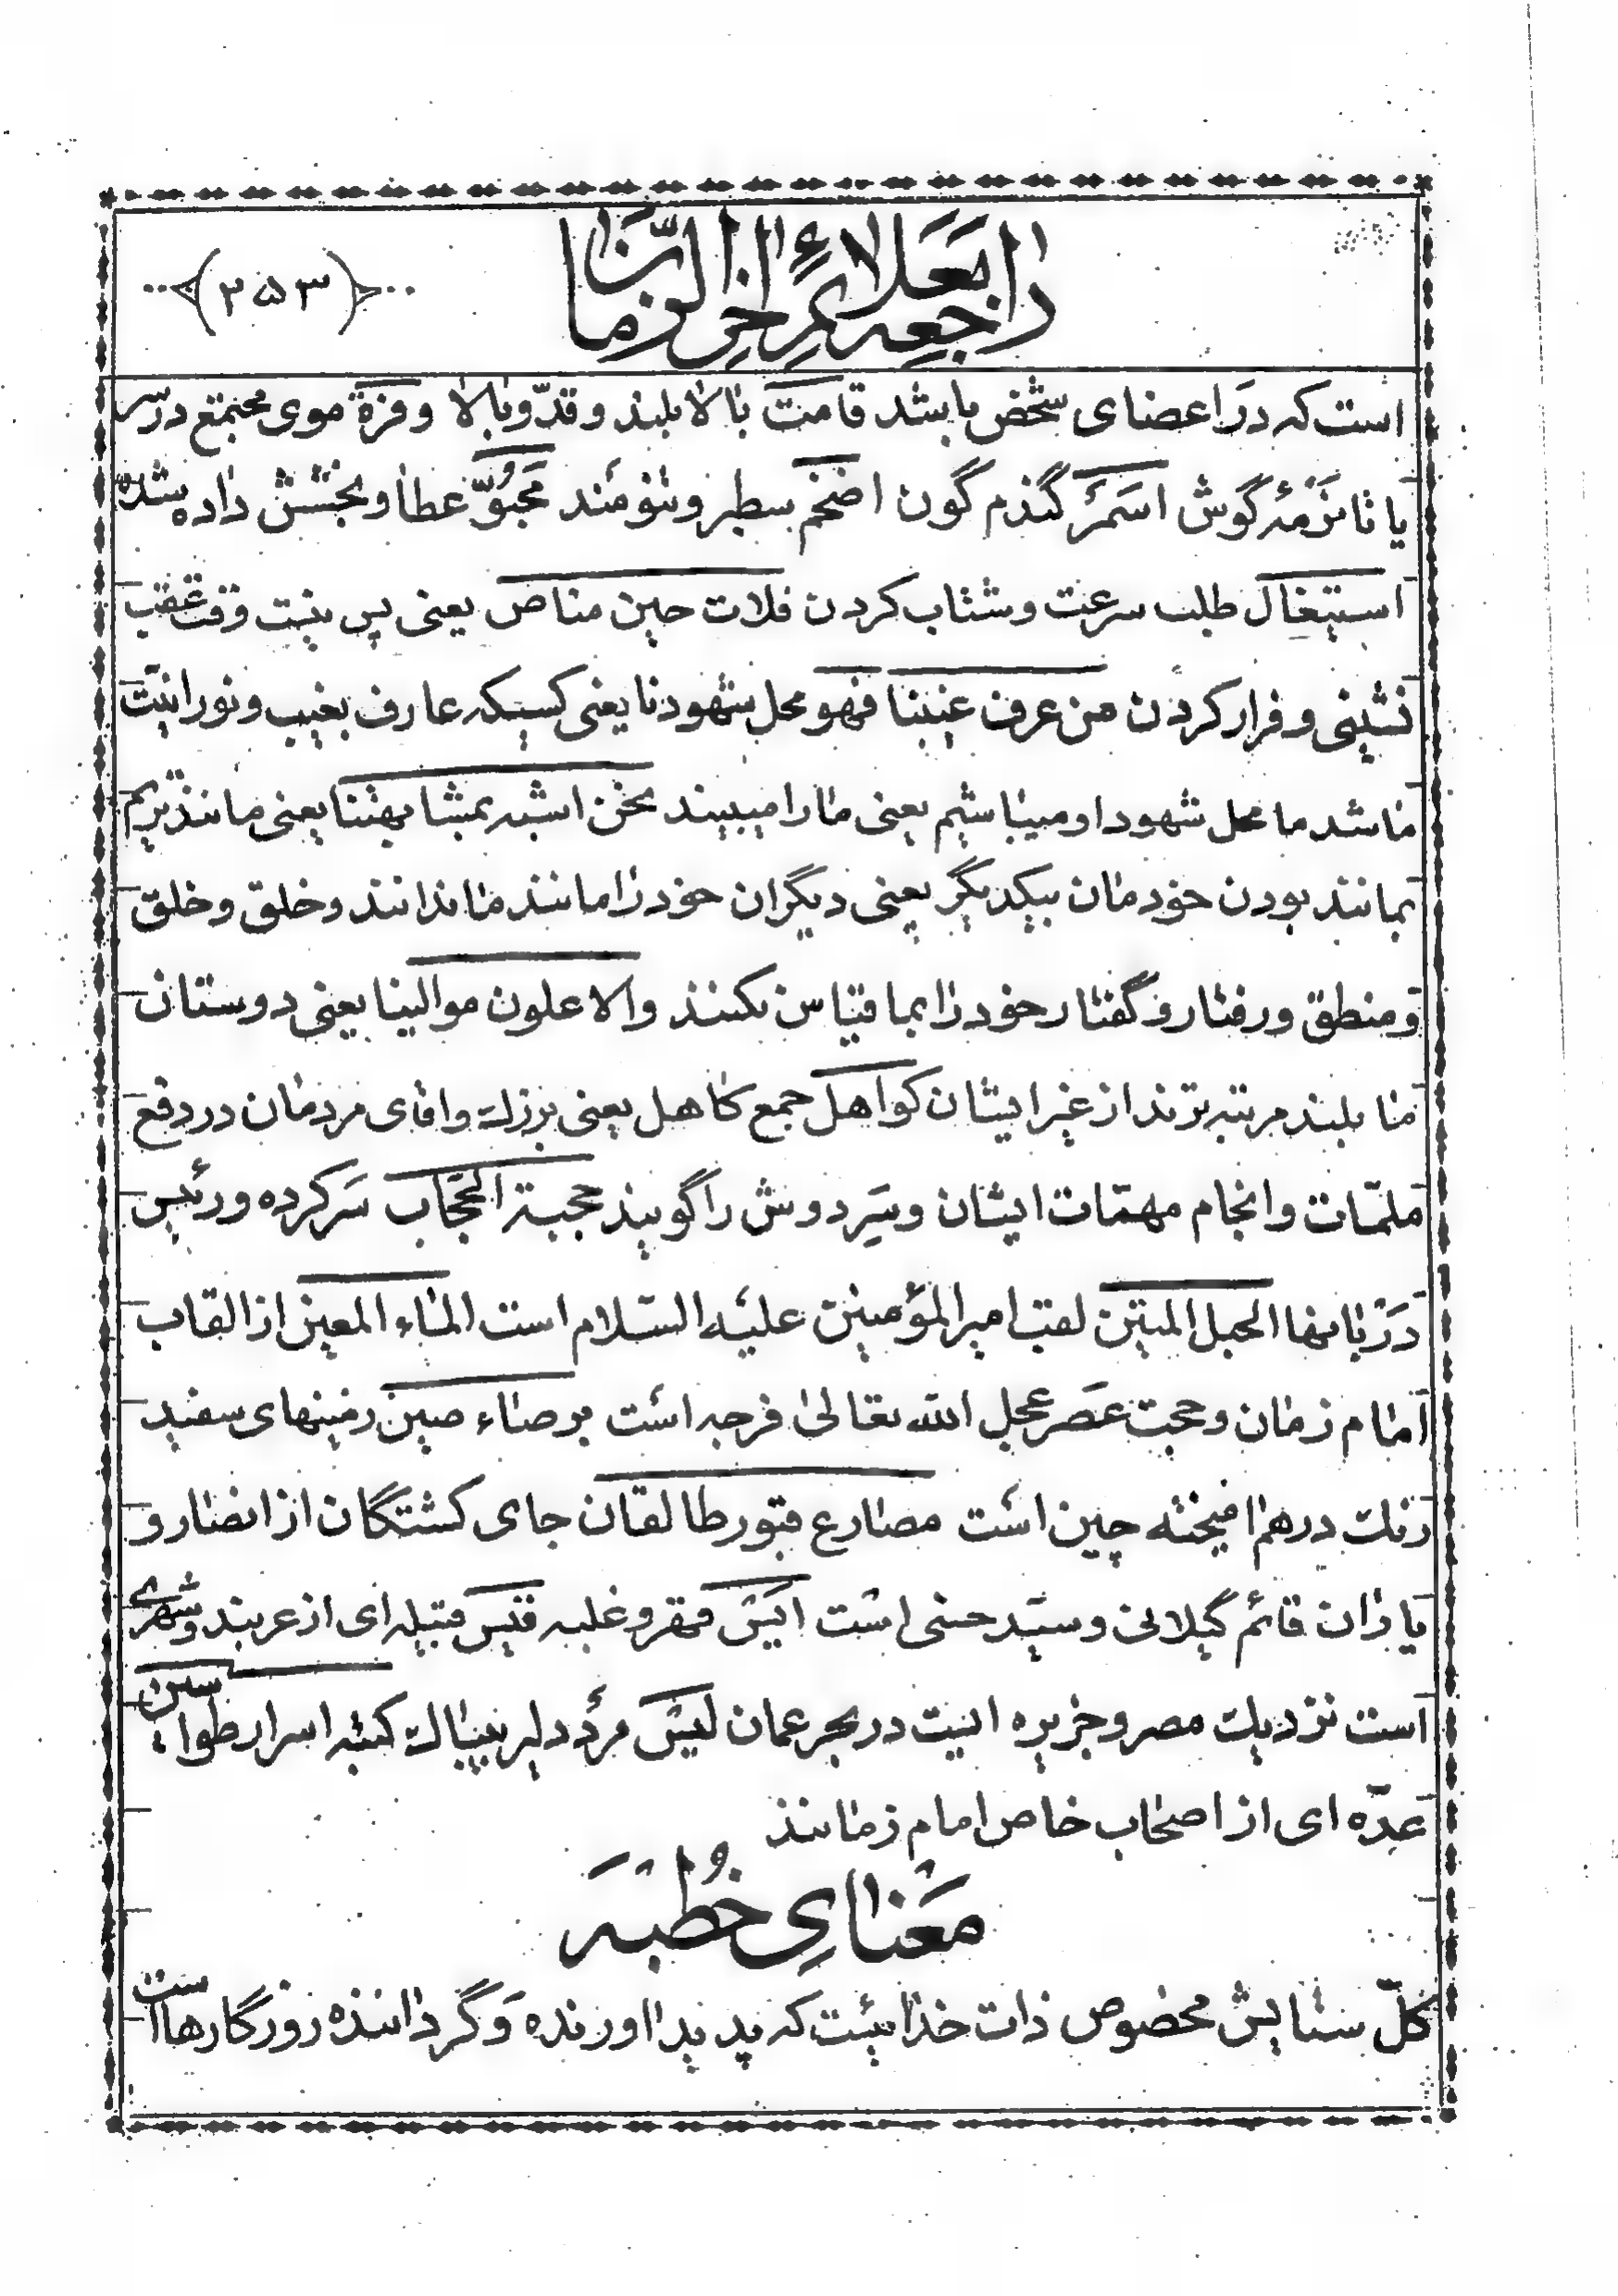 راجعه بعلائم اخر الزمان
(۲۵۳)
است که در اعضای شخص باشد قامت بالا بلند و قدّ و بالا وفرة موی مجتمع در سر
یا تا نرمۀ گوش اسمر گندم گون اضخم سطبر و تنومند محبوّ عطا و بخشش داده شده
استیغال طلب سرعت و شتاب کردن فلات حین مناص یعنی پس نیست وقت عقب
نشینی و فرار کردن من عرف غیبنا فهو محل شهودنا یعنی کسیکه عارف بغیب و نورانیّت
ما شد ما محل شهود او میباشیم یعنی ما را میبیند نحن اشبه بمشابهتنا یعنی مانندتریم
بمانند بودن خودمان بیکدیگر یعنی دیگران خود را مانند ما ندانند و خلق و خلق
و منطق و رفتار و گفتار خود را بما قیاس نکنند والاعلون موالینا یعنی دوستان
ما بلند مرتبه ترند از غیر ایشان کواهل جمع کاهل یعنی بزرک و اقای مردمان در دفع
ملمّات و انجام مهمّات ایشان و سر دوش را گویند حجبة الحجّاب سرکرده و رئیس
دربانها الحبل المتین لقب امیر المؤمنین علیه السّلام است الماء المعین از القاب
امام زمان و حجت عصر عجل الله تعالی فرجه است بوصاء صین زمینهای سفید
رنک درهم امیخته چین است مصارع قبور طالقان جای کشتگان از انصار و
یاران قائم گیلانی و سیّد حسنی است ایس قهر و غلبه قیس قبیله ای از عربند و شهری
است نزدیک مصر و جزیره ایست در بحر عمان لیس مرد دلیر بیباک کتبه اسرار طواسین
عدّه ای از اصحاب خاص امام زمانند
معنای خطبه
کلّ ستایش مخصوص ذات خدائیست که پدید اورنده و گرداننده روزگارها است